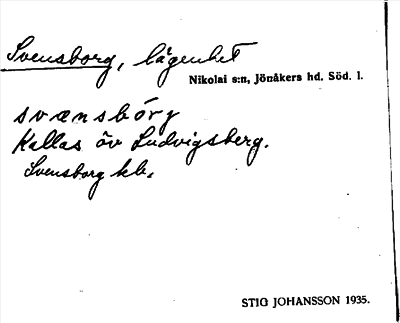 Svensborg, lägenhet
Nikolai s:n, Jönåkers hd. Söd. l.
svænsbórj
Kallas äv Ludvigsberg.
Svensborg kb.
STIG JOHANSSON 1935.